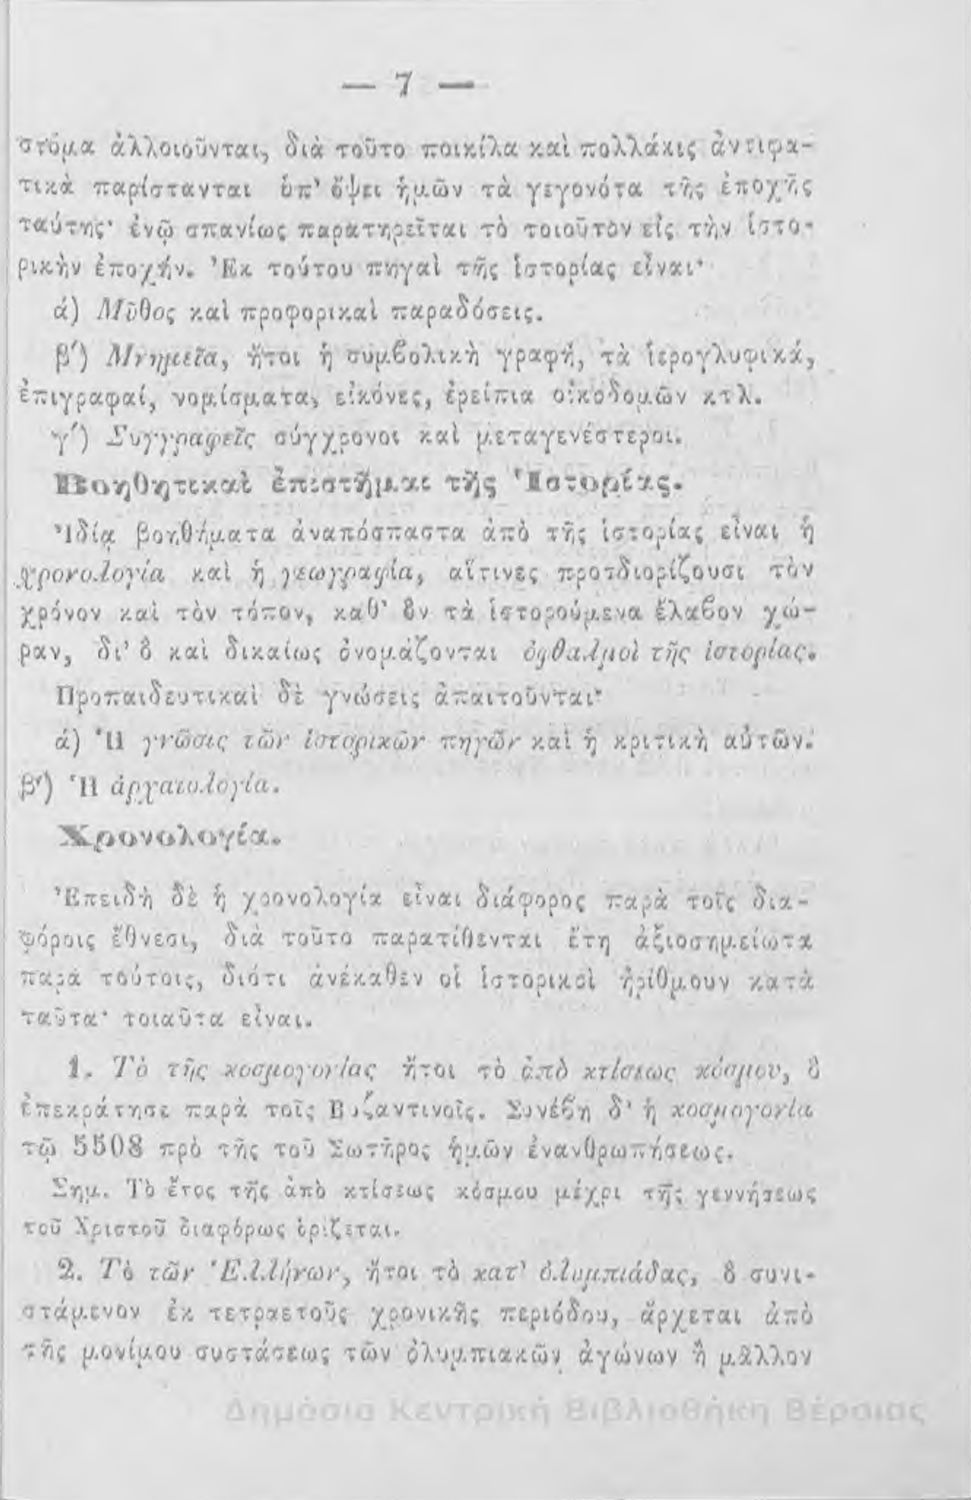 — 7 —
στόμα ἀλλοιοῦνται, διὰ τοῦτο ποικίλα καὶ πολλάκις ἀντιφα-
τικὰ παρίστανται ὑπ’ ὄψει ἡμῶν τὰ γεγονότα τῆς ἐποχῆς
ταύτης· ἐνῷ σπανίως παρατηρεῖται τὸ τοιοῦτον εἰς τὴν ἱστο-
ρικὴν ἐποχήν. Ἐκ τούτου πηγαὶ τῆς ἱστορίας εἶναι·
ά) Μῦθος καὶ προφορικαὶ παραδόσεις.
β′) Μνημεῖα, ἤτοι ἡ συμβολικὴ γραφή, τὰ ἱερογλυφικά,
ἐπιγραφαί, νομίσματα, εἰκόνες, ἐρείπια οἰκοδομῶν κτλ.
γ′) Συγγραφεῖς σύγχρονοι καὶ μεταγενέστεροι.
Βοηθητικαὶ ἐπιστῆμαι τῆς Ἱστορίας.
Ἰδίᾳ βοηθήματα ἀναπόσπαστα ἀπὸ τῆς ἱστορίας εἶναι ἡ
χρονολογία καὶ ἡ γεωγραφία, αἵτινες προσδιορίζουσι τὸν
χρόνον καὶ τὸν τόπον, καθ’ ὃν τὰ ἱστορούμενα ἔλαβον χώ-
ραν, δι’ ὃ καὶ δικαίως ὀνομάζονται ὀφθαλμοὶ τῆς ἱστορίας.
Προπαιδευτικαὶ δὲ γνώσεις ἀπαιτοῦνται·
ά) Ἡ γνῶσις τῶν ἱστορικῶν πηγῶν καὶ ἡ κριτικὴ αὐτῶν.
β′) Ἡ ἀρχαιολογία.
Χρονολογία.
Ἐπειδὴ δὲ ἡ χρονολογία εἶναι διάφορος παρὰ τοῖς δια-
φόροις ἔθνεσι, διὰ τοῦτο παρατίθενται ἔτη ἀξιοσημείωτα
παρὰ τούτοις, διότι ἀνέκαθεν οἱ ἱστορικοὶ ἠρίθμουν κατὰ
ταῦτα· τοιαῦτα εἶναι.
1. Τὸ τῆς κοσμογονίας ἤτοι τὸ ἀπὸ κτίσεως κόσμου, ὃ
ἐπεκράτησε παρὰ τοῖς Βυζαντινοῖς. Συνέβη δ’ ἡ κοσμογονία
τῷ 5508 πρὸ τῆς τοῦ Σωτῆρος ἡμῶν ἐνανθρωπήσεως.
Σημ. Τὸ ἔτος τῆς ἀπὸ κτίσεως κόσμου μέχρι τῆς γεννήσεως
τοῦ Χριστοῦ διαφόρως ὁρίζεται.
2. Τὸ τῶν Ἑλλήνων, ἤτοι τὸ κατ’ ὀλυμπιάδας, ὃ συνι-
στάμενον ἐκ τετραετοῦς χρονικῆς περιόδου, ἄρχεται ἀπὸ
τῆς μονίμου συστάσεως τῶν ὀλυμπιακῶν ἀγώνων ἢ μᾶλλον
Δημόσια Κεντρική Βιβλιοθήκη Βέροιας